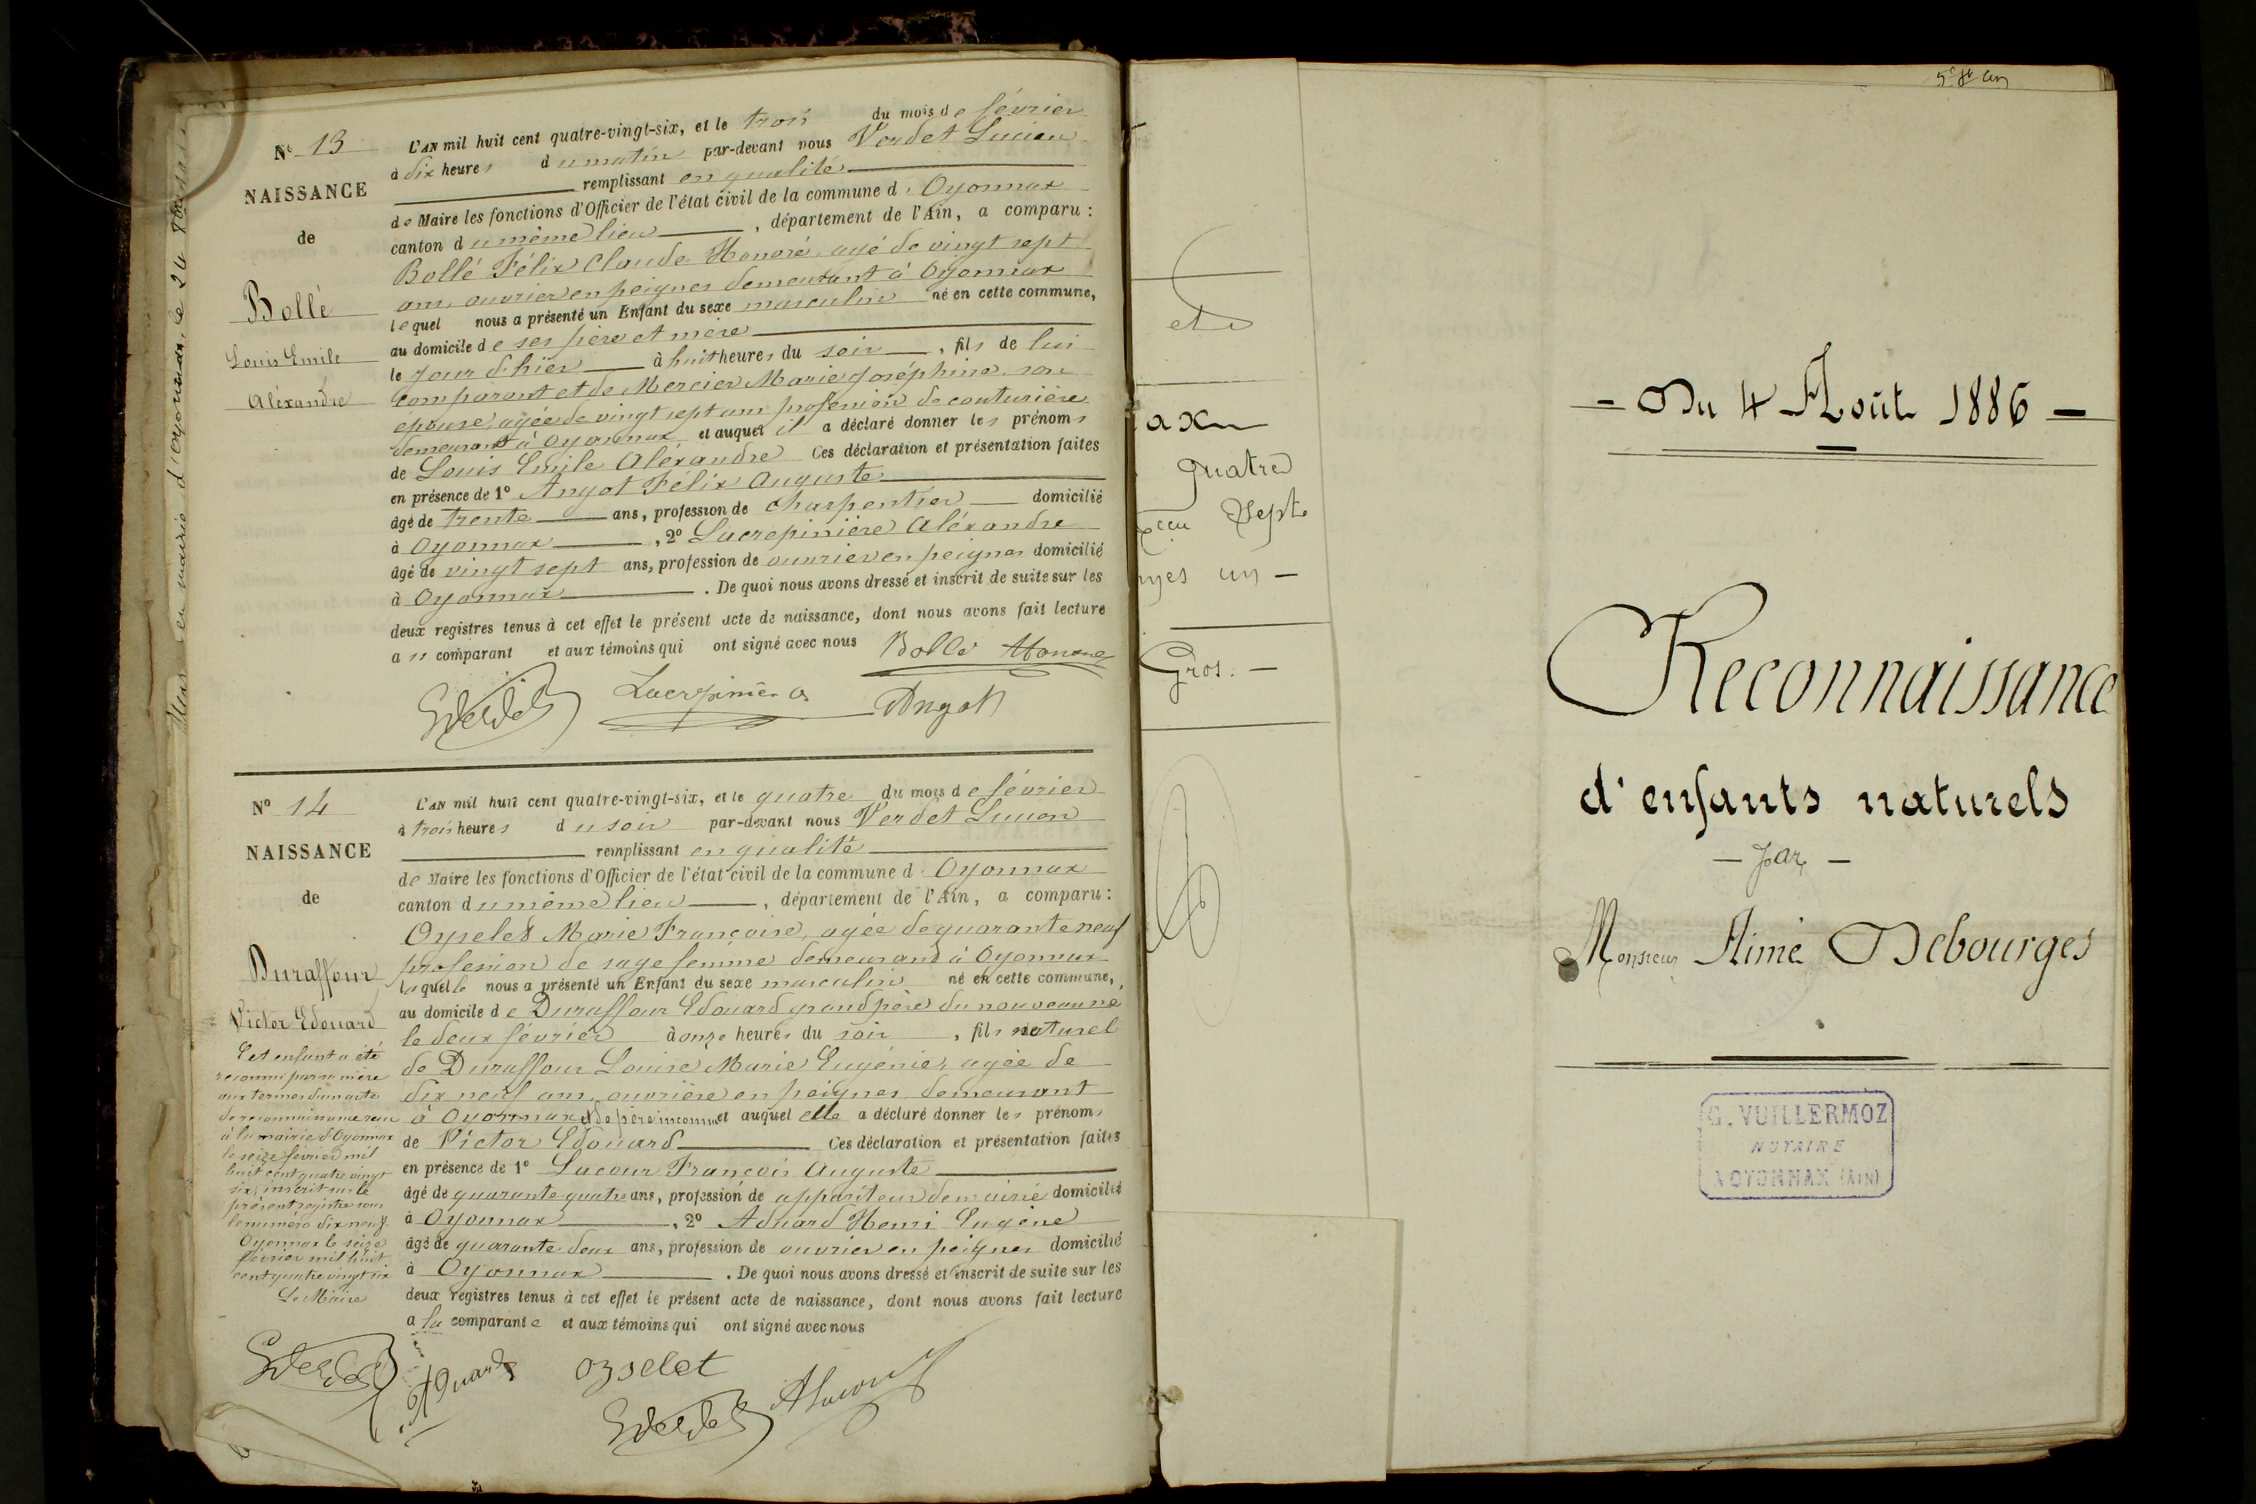 N° 13
NAISSANCE
de
Bollé
Louis Emile
Aléxandre
L'AN mil huit cent quatre-vingt-six, et le trois du mois de février
à dix heures du matin par-devant nous Verdet Lucien
remplissant en qualité
de Maire les fonctions d'Officier de l'état civil de la commune d'Oyonnax
canton du même lieu, département de l'Ain, a comparu :
Bollé Félix Claude Honoré, agé de vingt sept
ans, ouvrier en peignes demeurant à Oyonnax
lequel nous a présenté un Enfant du sexe masculin né en cette commune,
au domicile de ses père et mère
le jour d'hier à huit heures du soir, fils de lui
comparant et de Mercier Marie Joséphine son
épouse, agée de vingt sept ans profession de couturière
demeurant à Oyonnax et auquel il a déclaré donner les prénoms
de Louis Emile Aléxandre Ces déclaration et présentation faites
en présence de 1° Angot Félix Auguste
âgé de trente ans, profession de charpentier domicilié
à Oyonnax, 2° Lacrepinière Aléxandre
âgé de vingt sept ans, profession de ouvrier en peignes domicilié
à Oyonnax. De quoi nous avons dressé et inscrit de suite sur les
deux registres tenus à cet effet le présent acte de naissance, dont nous avons fait lecture
au comparant et aux témoins qui ont signé avec nous Bollé Honoré
Lacrepinière Angot
N° 14
NAISSANCE
de
Duraffour
Victor Edouard
Cet enfant a été
reconnu par sa mère
aux termes d'un acte
de reconnaissance reçu
à la mairie d'Oyonnax
le seize février mil
huit cent quatre vingt
six, inscrit sur le
présent registre sous
le numéro dix neuf.
Oyonnax le seize
février mil huit
cent quatre vingt six
Le Maire
L'AN mil huit cent quatre-vingt-six, et le quatre du mois de février
à trois heures du soir par-devant nous Verdet Lucien
remplissant en qualité
de Maire les fonctions d'Officier de l'état civil de la commune d'Oyonnax
canton du même lieu, département de l'Ain, a comparu :
Oyselet Marie Françoise, agée de quarante neuf
profession de sage femme demeurant à Oyonnax
laquelle nous a présenté un Enfant du sexe masculin né en cette commune,
au domicile de Duraffour Edouard grand père du nouveau né
le deux février à onze heures du soir, fils naturel
de Duraffour Louise Marie Eugénie, agée de
dix neuf ans, ouvrière en peignes demeurant
à Oyonnax et de père inconnu et auquel elle a déclaré donner les prénoms
de Victor Edouard Ces déclaration et présentation faites
en présence de 1° Lacour François Auguste
âgé de quarante quatre ans, profession de appariteur de mairie domicilié
à Oyonnax, 2° Aduard Henri Eugène
âgé de quarante deux ans, profession de ouvrier en peignes domicilié
à Oyonnax. De quoi nous avons dressé et inscrit de suite sur les
deux registres tenus à cet effet le présent acte de naissance, dont nous avons fait lecture
a la comparante et aux témoins qui ont signé avec nous
Oyselet
et
ax
quatre
Sept
un -
Gros. -
- Du 4 Août 1886 -
Reconnaissance
d'enfants naturels
- par -
Monsieur Aimé Debourges
G. VUILLERMOZ
NOTAIRE
A OYONNAX (AIN)